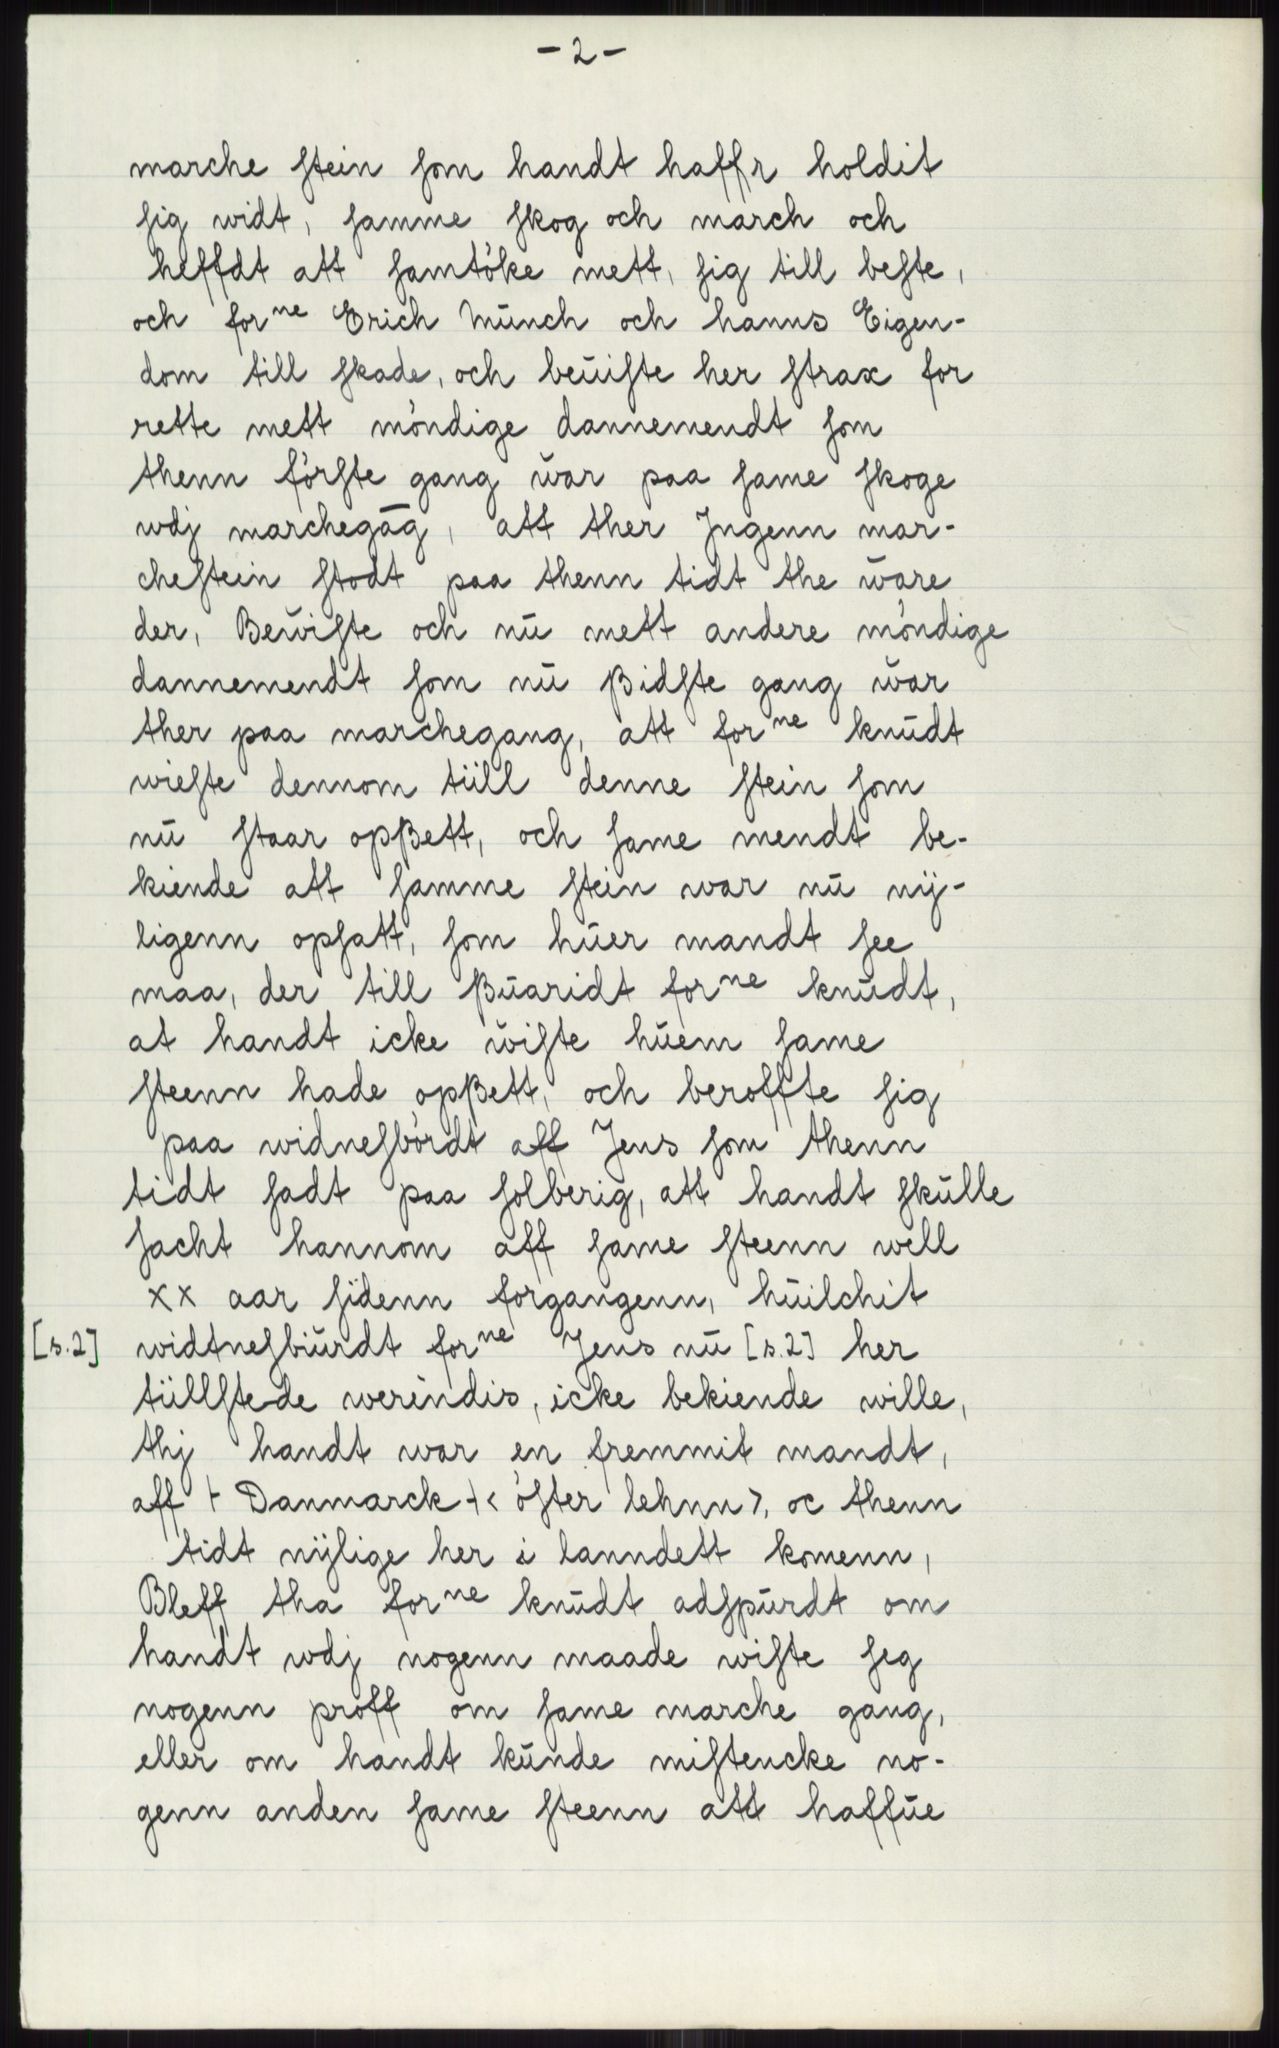 - 2 -
marche ſtein ſom handt haffr holdit
ſig widt, ſamme ſkog och march och
heffdt att ſamtöke mett, ſig till beſte,
och forⁿᵉ Erich Münch och hanns Eigen-
dom till ſkade, och beüiſte her ſtrax for
rette mett möndige dannemendt ſom
thenn förſte gang w̆ar paa ſame ſkoge
wdj marchegāg, att ther Jngenn mar-
cheſtein ſtodt paa thenn tidt the w̆are
der, Bew̆iſte och nū mett andere möndige
dannemendt ſom nū ßidſte gang w̆ar
ther paa marchegang, att forⁿᵉ knūdt
wieſte dennom tüll denne ſtein ſom
nū ſtaar opßett, och ſame mendt be-
kiende att ſamme ſtein war nū nÿ-
ligenn opſatt, ſom hūer mandt ſee
maa, der till ßūaridt forⁿᵉ knūdt,
at handt icke w̆iſte hūem ſame
ſteenn hade opßett, och beroffte ſig
paa widneſbördt aff Jens ſom thenn
tidt ſadt paa ſolberig, att handt ſkūlle
ſacht hannom aff ſame ſteenn well
xx aar ſidenn forgangenn, hūilchit
[s.2] widtneſbiūrdt forⁿᵉ Jens nū [s.2] her
tüllſtede werindis, icke bekiende wille,
thj handt war en fremmit mandt,
aff ⊦ Danmarck ⊣ < öſter lehnn >, oc thenn
tidt nÿlige her i lanndett komenn,
Bleff tha forⁿᵉ knūdt adſpūrdt om
handt wdj nogenn maade wiſte ſeg
nogenn proff om ſame marche gang,
eller om handt kūnde miſtencke no-
genn anden ſame ſteenn att haffūe